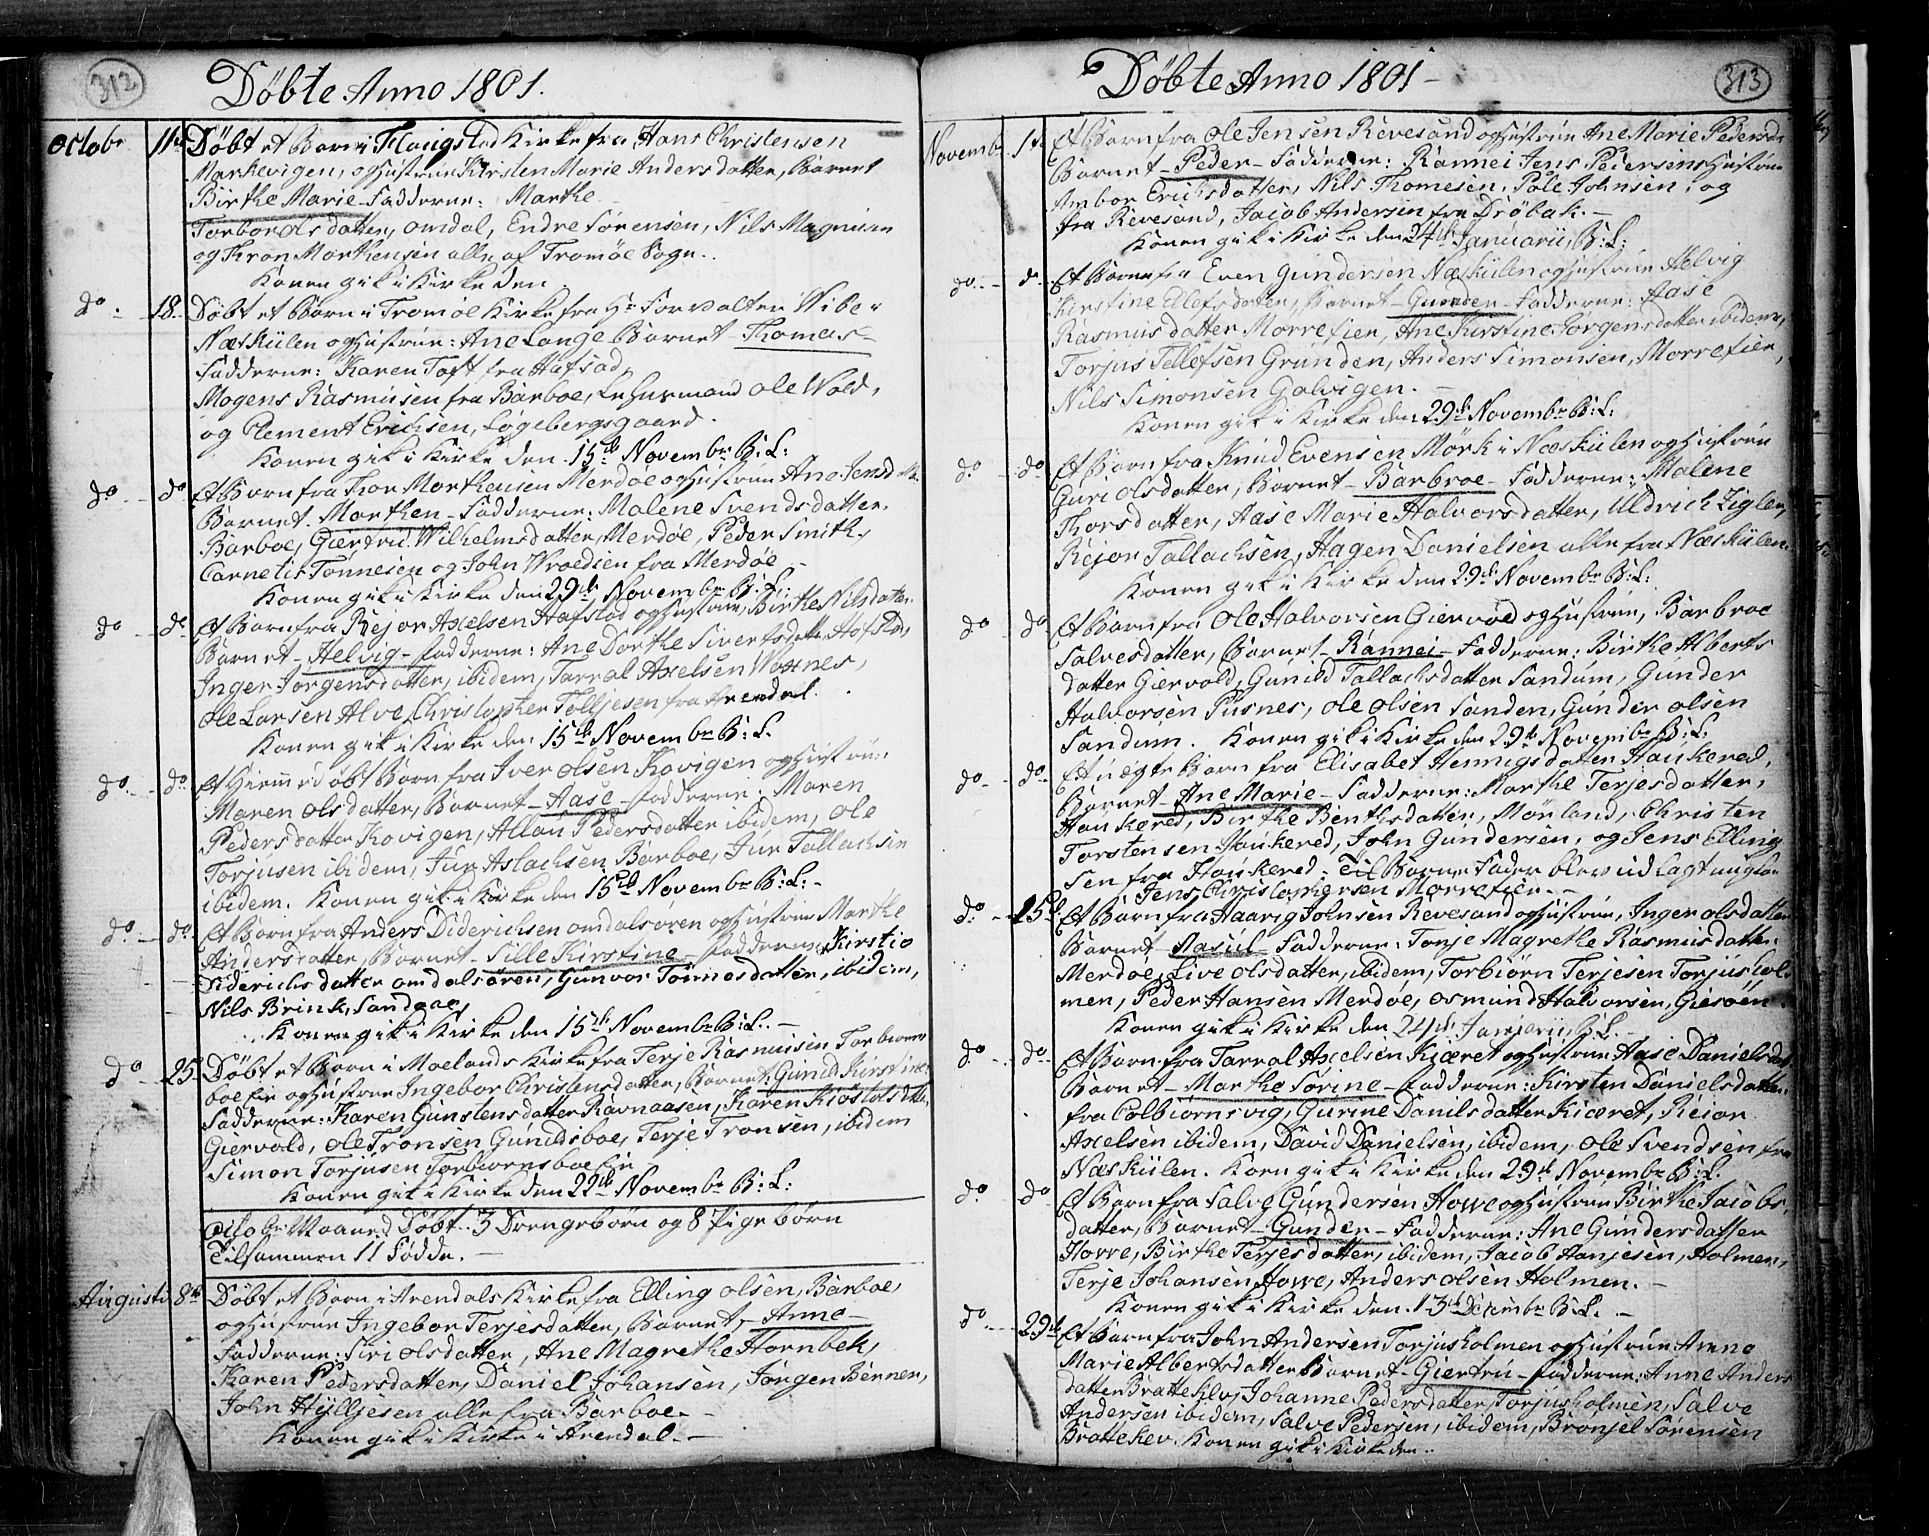 312
Döbte Anno 1801.
Octobr 11te Döbt et Barn i Flougstad Kirke fra Hans Christensen
Markevigen, og Hustrue Kirsten Marie Anders datter, Barnet
Birthe Marie Fadderne: Marthe
Torbor Ols datter, Omdal, Endre Sörensen, Nils Magnusen
og Thron Morthensen alle af Tromöe Sogn.
Konen gik i Kirke den
do. 18. Döbt et Barn i Tromöe Kirke fra Hr Forvalter Wibe i
Næskülen og Hustrue: Ane Lange Barnet Thomas
Fadderne: Karen Toft fra Hafstad,
Mogens Rasmusen fra Barboe, Ole Wold,
og Clement Erichsen, Lögebergsgaard.
Konen gik i Kirke den 15de Novembr B: L:
do do Et Barn fra Thor Morthensen Merdöe og Hustrue Ane Jensdatter
Barnet Morthen Fadderne: Malene Svends datter,
Barboe, Giertrud Wilhelms datter, Merdöe, Peder Smith,
Cornelis Tönnesen og John Wroldsen fra Merdöe
Konen gik i Kirke den 29de Novembr B: L:
do do Et Barn fra Rejor Axelsen Hafstad og Hustrue, Birthe Nilsdatter
Barnet Helvig Fadderne: Ane Dorthe Sivertsdatter, Hafstad,
Inger Jörgensdatter, ibidem, Tarral Axelsen Woxnes,
Ole Larsen Alve, Christopher Tölljesen fra Arendal.
Konen gik i Kirke den 15de Novembr B: L.
do. do. Et Hiemmedöbt Barn fra Iver Olsen Kovigen og Hustrue:
Maren Olsdatter, Barnet Aase Fadderne: Maren
Peders datter Kovigen, Allau Pedersdatter ibidem, Ole
Torjusen ibidem, Jur Aslachsen Barboe, Jur Tallachsen
ibidem. Konen gik i Kirke den 15de Novembr B: L:
do. do. Et Barn fra Anders Diderichsen Omdalsören og Hustrue Marthe
Andersdatter, Barnet Sille Kirstine Fadderne: Kirstie
Diderichs datter Omdalsören, Gunvor Tönnesdatter, ibidem,
Nils Brink, Sandene,
Konen gik i Kirke den 15de Novembr B: L.
do 25. Döbt et Barn i Moelands Kirke fra Terje Rasmusen Torbiörns
boe fie og Hustrue Ingebor Christensdatter, Barnet: Gunild Kirstine
Fadderne: Karen Gunstens datter Ravnaasen, Karen Kiöstolsdatter
Giervold, Ole Tronsen Gunildsboe, Terje Tronsen, ibidem
Simon Torjusen Torbiörnsboe fie
Konen gik i Kirke den 22de Novembr B: L:
Octobr Maaned Döbt 3 Drengebörn og 8 Pigebörn
Tilsammen 11 Födde.
Augusti 8de Döbt et Barn i Arendals Kirke fra Elling Olsen, Barboe,
og Hustrue Ingebor Terjesdatter, Barnet, Anne
Fadderne: Siri Olsdatter, Ane Magrethe Hornbek,
Karen Pedersdatter, Daniel Johansen, Jörgen Berner,
John Hylljesen alle fra Barboe.
Konen gik i Kirke i Arendal.
313
Döbte Anno 1801
Novembr 1te Et Barn fra Ole Jensen Revesand og Hustrue Ane Marie Pedersdr
Barnet Peder Fadderne: Rannei Jens Pedersens Hustrue
Ambor Erichsdatter, Nils Thomesen, Pole Johnsen, og
fra Revesand, Jacob Andersen fra Dröbak.
Konen gik i Kirke den 24de Januarii, B: L:
do. do Et Barn fra Even Gundersen Næskülen og Hustrue Helvig
Kirstine Ellefsdatter, Barnet Gunder Fadderne: Aase
Rasmusdatter Morrefier, Ane Kirstine Jörgensdatter ibidem,
Torjus Tellefsen Grunden, Anders Simonsen, Morrefier,
Nils Simonsen Galvigen.
Konen gik i Kirke den 29de Novembr B: L:
do do Et Barn fra Knud Evensen Mörk i Næskülen og Hustrue
Guri Olsdatter, Barnet Barbroe Fadderne: Malene
Thorsdatter, Aase Marie Halvorsdatter, Uldrich Zigler,
Rejor Tallachsen, Hagen Danielsen alle fra Næskülen.
Konen gik i Kirke den 29de Novembr B: L:
do do Et Barn fra Ole Halvorsen Giervold og Hustrue, Barbroe
Salvesdatter, Barnet Rannei Fadderne: Birthe Alberts
datter Giervold, Gunild Tallachsdatter Sandum, Gunder
Halvorsen Pusnes, Ole Olsen Sanden, Gunder Olsen
Sandum. Konen gik i Kirke den 29de Novembr B: L:
do. do. Et uægte Barn fra Elisabet Hennigsdatter Haukered,
Barnet Ane Marie Fadderne: Marthe Terjesdatter,
Haukered, Birthe Benthsdatter, Mörland, Christen
Torstensen Haukered, John Gundersen, og Jens Elling
sen fra Haukered: Til Barne Fader blev udlagt ungkar
Jens Christophersen Morrefier.
do. 15de Et Barn fra Haavig Johnsen Revesand og Hustrue, Inger Olsdatter
Barnet Aasul Fadderne: Tonje Magrethe Rasmusdatter
Merdöe, Live Olsdatter, ibidem, Torbiörn Terjesen Torjushol
men, Peder Hansen Merdöe, Osmund Halvorsen, Giesöen.
Konen gik i Kirke den 24de Januarii, B: L.
do do. Et Barn fra Tarral Axelsen Kiæret og Hustrue Aase Danielsdat
Barnet Marthe Sörine Fadderne: Kirsten Danielsdatter
fra Colbiörnsvig, Gurine Danilsdatter Kiæret, Reior
Axelsen ibidem, David Danielsen, ibidem, Ole Svendsen fra
Næskülen. Konen gik i Kirke den 29de Novembr B: L.
do do Et Barn fra Salve Gundersen Howe og Hustrue Birthe Jacobs
datter, Barnet Gunder Fadderne: Ane Gundersdatter
Howe, Birthe Terjesdatter, ibidem, Jacob Hansen, Holmen,
Terje Johansen Howe, Anders Olsen Holmen.
Konen gik i Kirke den 13de Decembr B: L.
do 29de Et Barn fra John Andersen Torjusholmen og Hustrue Anna
Marie Albertsdatter Barnet Giertru Fadderne: Anne Anders
datter Brattekley, Johanne Pedersdatter, Torjusholmen, Salve
Andersen ibidem, Salve Pedersen, ibidem, Brönjel Sörensen
Brattekley. Konen gik i Kirke den